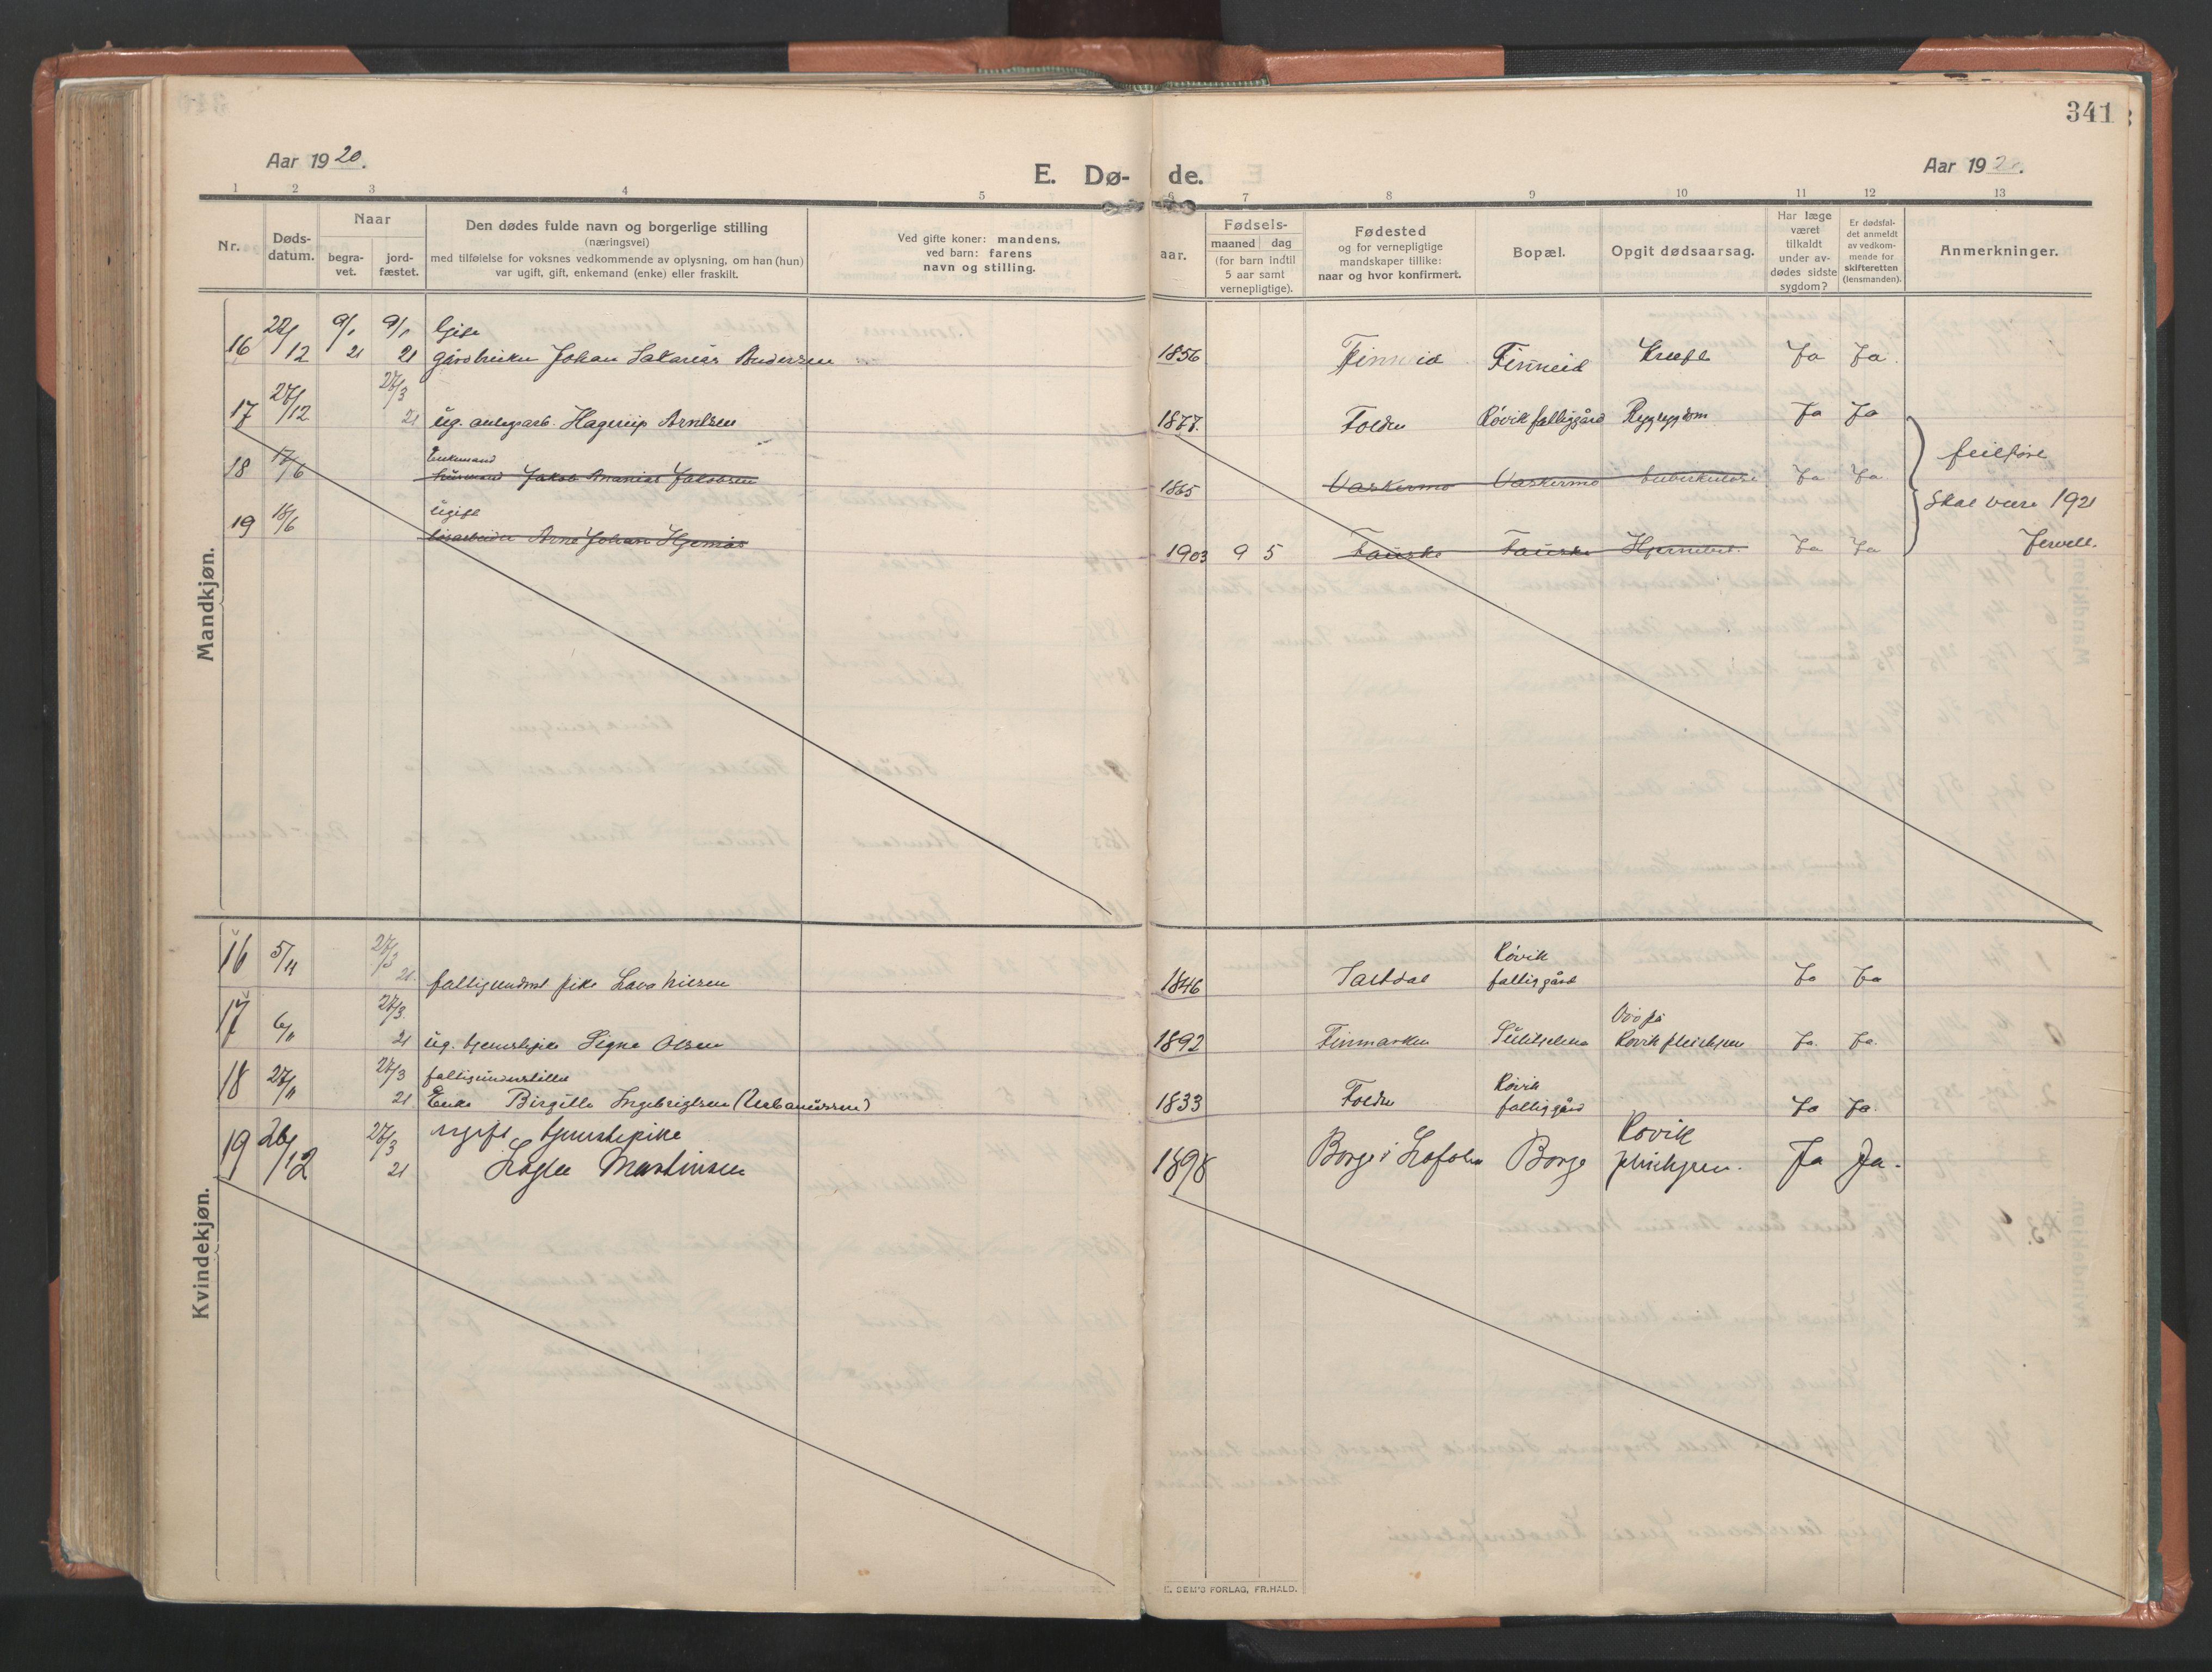 341
Aar 1920.
E. Dø- de.
Aar 192 .
1 2 3 4 5 6 7 8 9 10 11 12 13
Nr.
Døds-
datum.
Naar
begra-
vet.
jord-
fæstet.
Den dødes fulde navn og borgerlige stilling
(næringsvei)
med tilføielse for voksnes vedkommende av oplysning, om han (hun)
var ugift, gift, enkemand (enke) eller fraskilt.
Ved gifte koner: mandens,
ved barn: farens
navn og stilling.
Fødsels-
aar.
maaned dag
(for barn indtil
5 aar samt
vernepligtige).
Fødested
og for vernepligtige
mandskaper tillike:
naar og hvor konfirmert.
Bopæl.
Opgit dødsaarsag.
Har læge
været
tilkaldt
under av-
dødes sidste
sygdom?
Er dødsfal-
det anmeldt
av vedkom-
mende for
skifteretten
(lensmanden).
Anmerkninger.
Mandkjøn.
9/1 9/1 Gift
16 /12 21 21 Johan Sakarias Andersen 1856 Finneid Finneid Kreft Ja Ja
27/3
17 27/12 21 ug. Hagerup Arntsen 1877 Folden Røvik fattiggård Rygsygdom Ja Ja
Enkemand
18 17/6 husmand Jakob Ananias Jakobsen 1865 Vaskermo Vaskermo tuberkulose Ja Ja
feilført
skal være 1921
ugift
19 18/6 Arne Johan 1903 9 5 Fauske Fauske Ja Ja
Kvindekjøn.
27/3 Røvik
16 5/11 21 fattigunderst. pike Lava Nilsen 1846 Saltdal fattiggård Ja Ja
27/3 Død på
17 6/11 21 ug. tjenestepike Signe Olsen 1892 Finmarken Sulitjelma Røvik pleiehjem Ja. Ja.
27/3 fattigunderstøttet Røvik
18 27/11 21 Enke Birgitte Ingebrigtsen (Urbanussen) 1833 Folden fattiggård Ja Ja.
27/3 ugift tjenestepike Røvik
19 26/12 21 Martinsen 1898 Borge i Lofoten Borge pleiehjem. Ja Ja.
E. SEM'S FORLAG, FR.HALD.